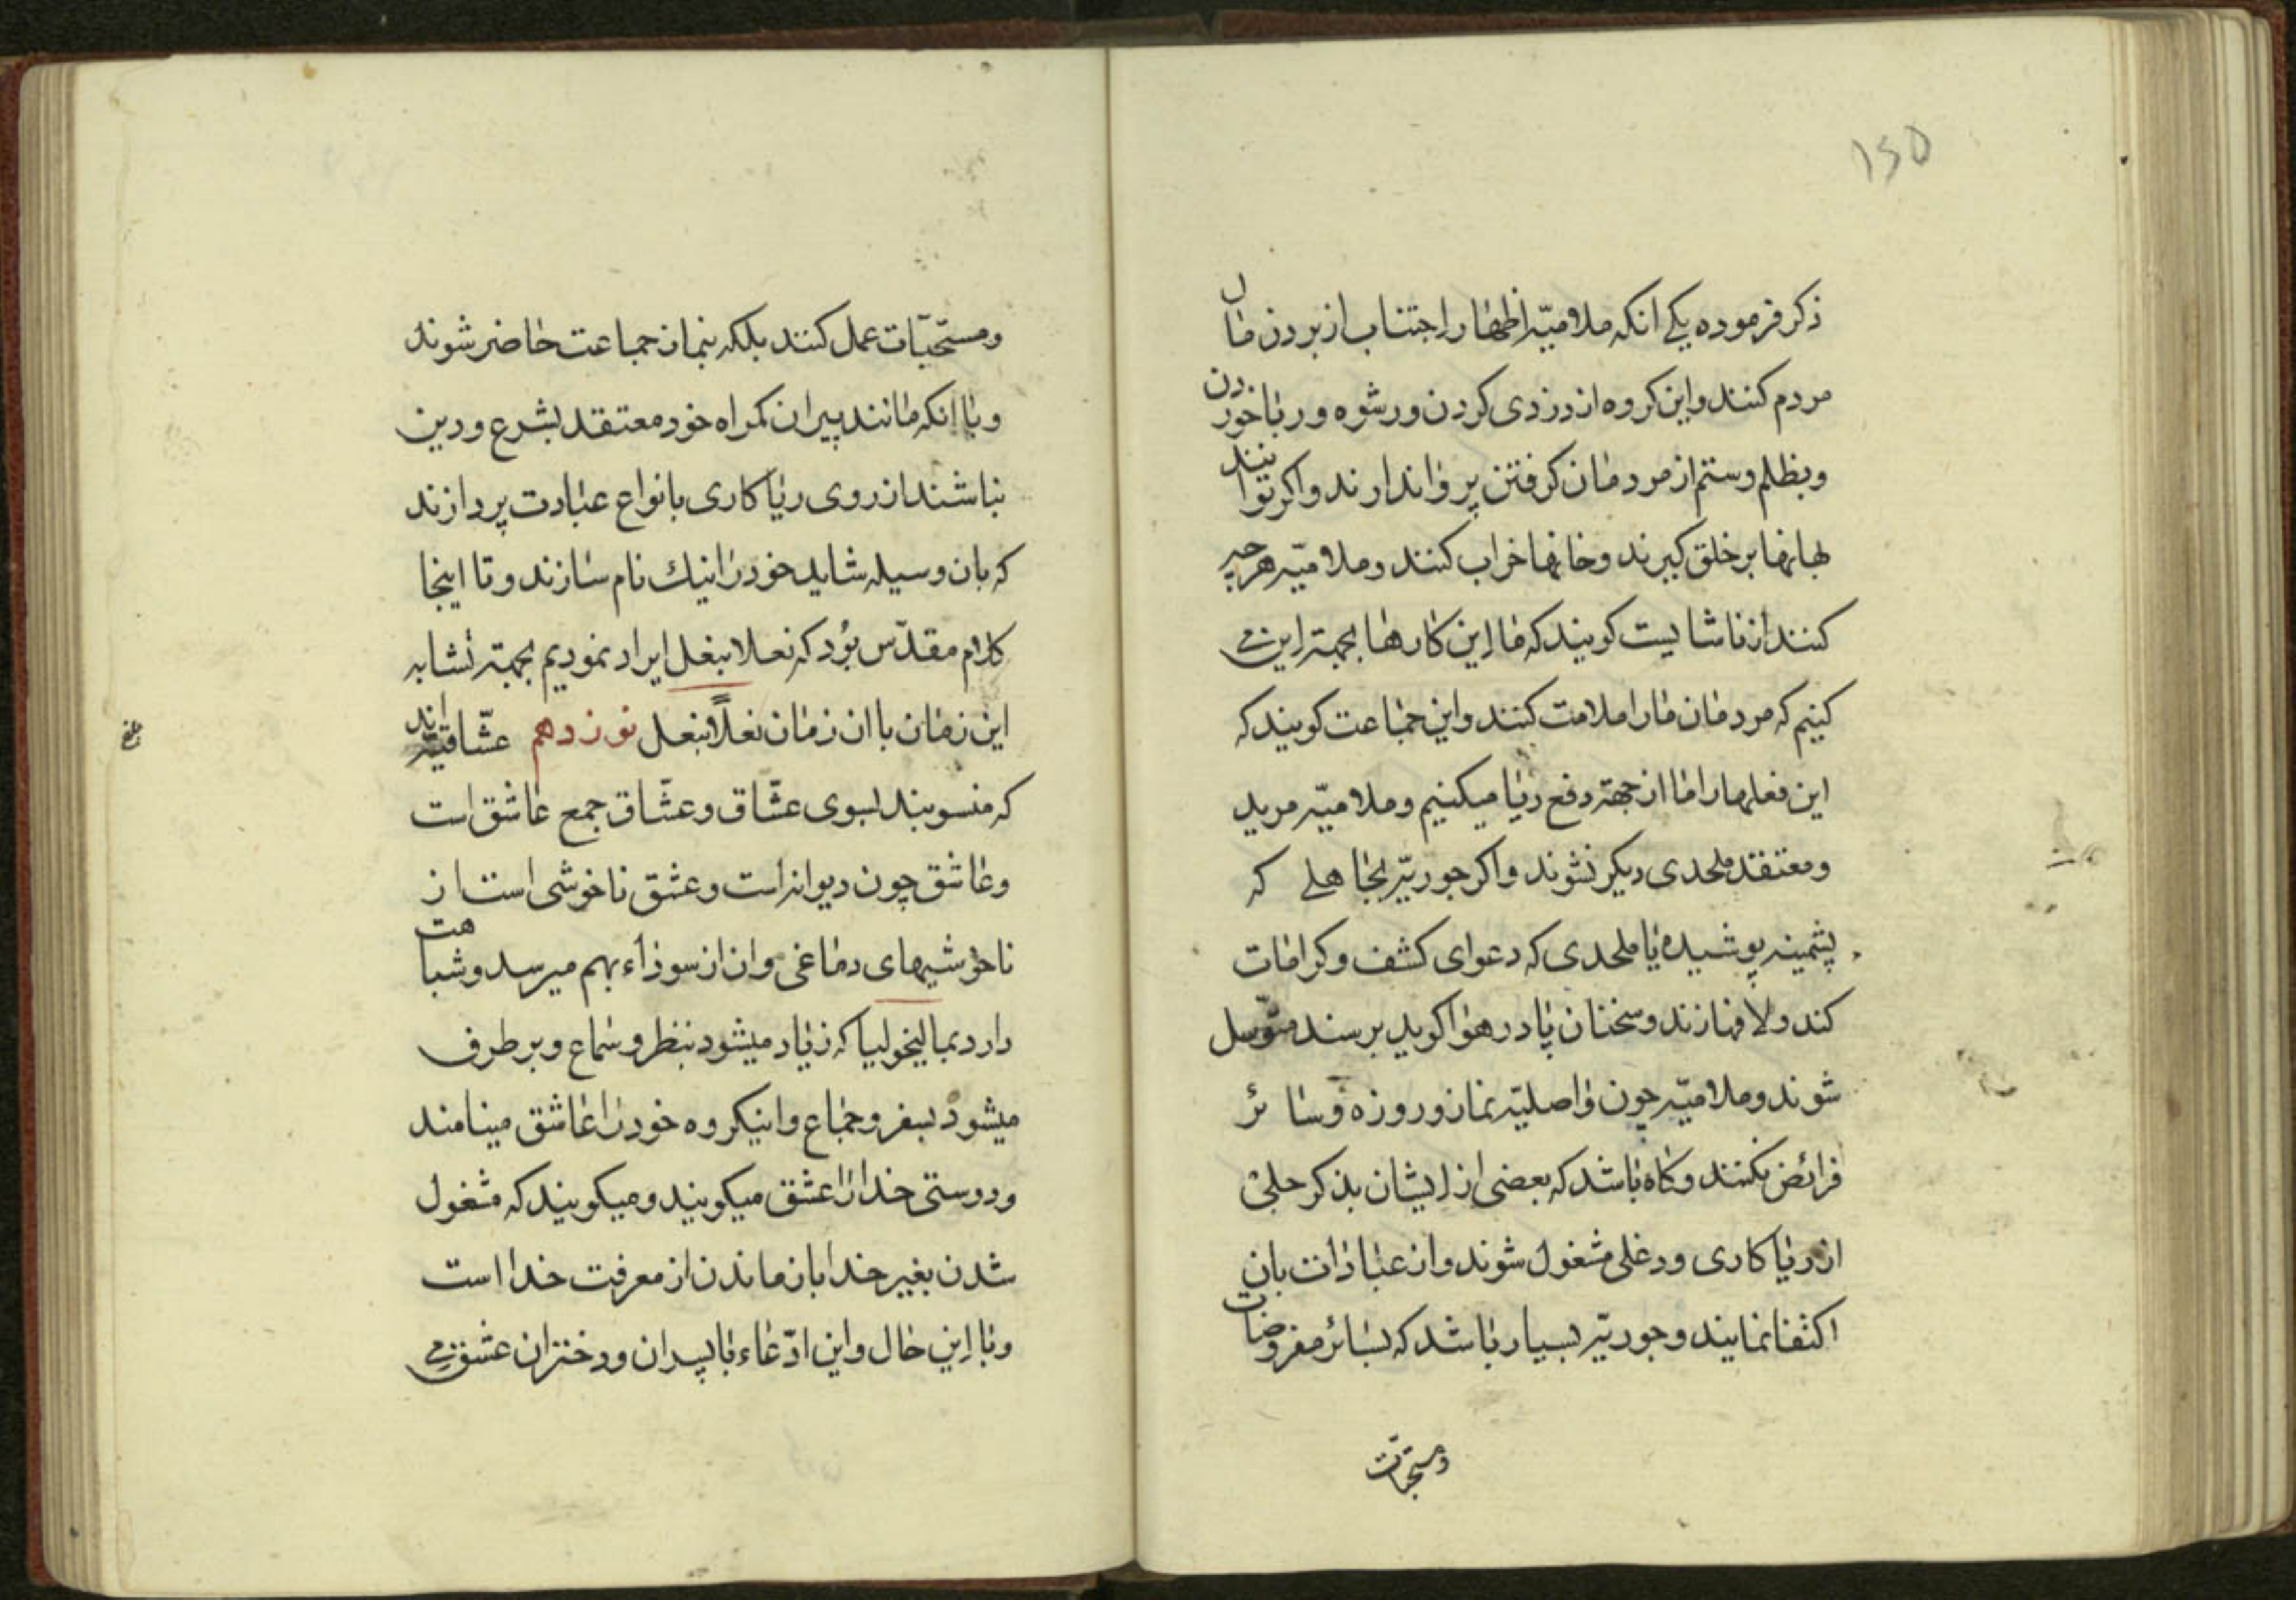 ۱۵۵
ذکر فرموده یکی انکه ملامیّه اظهار اجتناب از بردن مال
مردم کنند و این کروه از دزدی کردن و رشوه و ربا خوردن
و بظلم و ستم از مردمان کرفتن پروا ندارند و اکر توانند
بهانها بر خلق کیرند و خانها خراب کنند و ملامیّه هرچه
کنند از ناشایست کویند که ما این کارها بجهة این می
کنیم که مردمان ما را ملامت کنند و این جماعت کویند که
این فعلها را ما از جهة دفع ریا میکنیم و ملامیّه مرید
و معتقد ملحدی دیکر نشوند و اکر جوریّه بجاهلی که
پشمینه پوشیده یا ملحدی که دعوای کشف و کرامات
کند و لافها زند و سخنان پا در هوا کوید برسند متوسل
شوند و ملامیّه چون واصلیّه نماز و روزه و سائر
فرائض نکنند و کاه باشد که بعضی از ایشان بذکر جلی
از ریا کاری و دغلی مشغول شوند و از عبادات بان
اکتفا نمایند و جوریّه بسیار باشد که بسائر مفروضات
و مستحبات
و مستحبّات عمل کنند بلکه بنماز جماعت حاضر شوند
و با انکه مانند پیران کمراه خود معتقد بشرع و دین
نباشند از روی ریا کاری بانواع عبادت پردازند
که بان وسیله شاید خود را نیك نام سازند و تا اینجا
کلام مقدّس بُود که نعلا بنعل ایراد نمودیم بجهة تشابه
این زمان با ان زمان نعلاً بنعل نوزدهم عشّاقیّه اند
که منسوبند بسوی عشّاق و عشّاق جمع عاشق است
و عاشق چون دیوانه است و عشق ناخوشی است از
ناخوشیهای دماغی و ان از سوداء بهم میرسد و شباهت
دارد بمالیخولیا که زیاد میشود بنظر و سماع و بر طرف
میشود بسفر و جماع و اینکروه خود را عاشق مینامند
و دوستی خدا را عشق میکویند و میکویند که مشغول
شدن بغیر خدا باز ماندن از معرفت خدا است
و با این حال و این ادّعاء با پسران و دختران عشق می